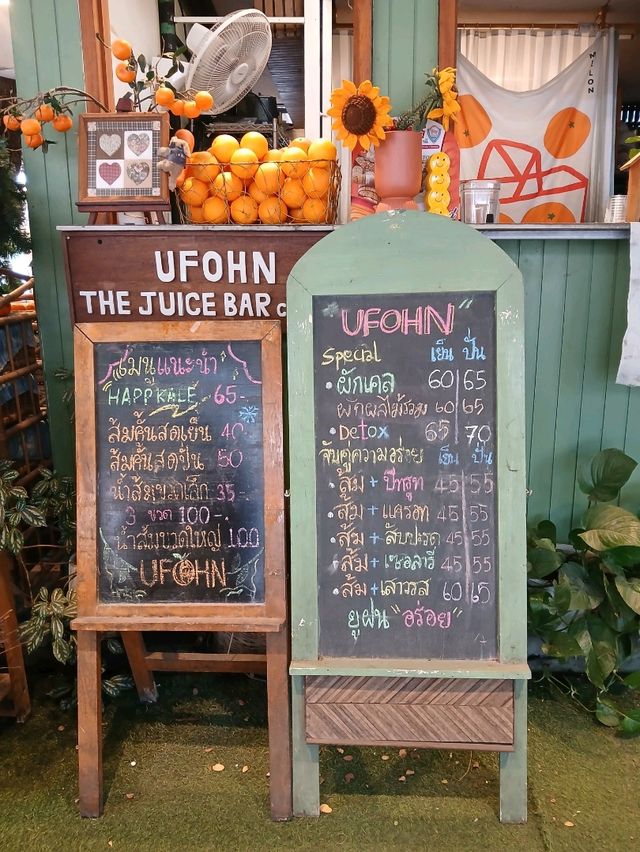 MILON
UFOHN
THE JUICE BAR
เมนูแนะนำ
HAPPKALE 65.-
ส้มคั้นสดเย็น 40
ส้มคั้นสดปั่น 50
น้ำส้มขวดเล็ก 35.-
3 ขวด 100.-
น้ำส้มขวดใหญ่ 100
UFOHN
UFOHN
Special เย็น ปั่น
• ผักเคล 60 65
• ผักผลไม้รวม 60 65
• Detox 65 70
จับคู่ความอร่อย เย็น ปั่น
• ส้ม + บีทรูท 45 55
• ส้ม + แครอท 45 55
• ส้ม + สับปะรด 45 55
• ส้ม + เซอลารี่ 45 55
• ส้ม + เสาวรส 60 65
ยูฝน "อร่อย"